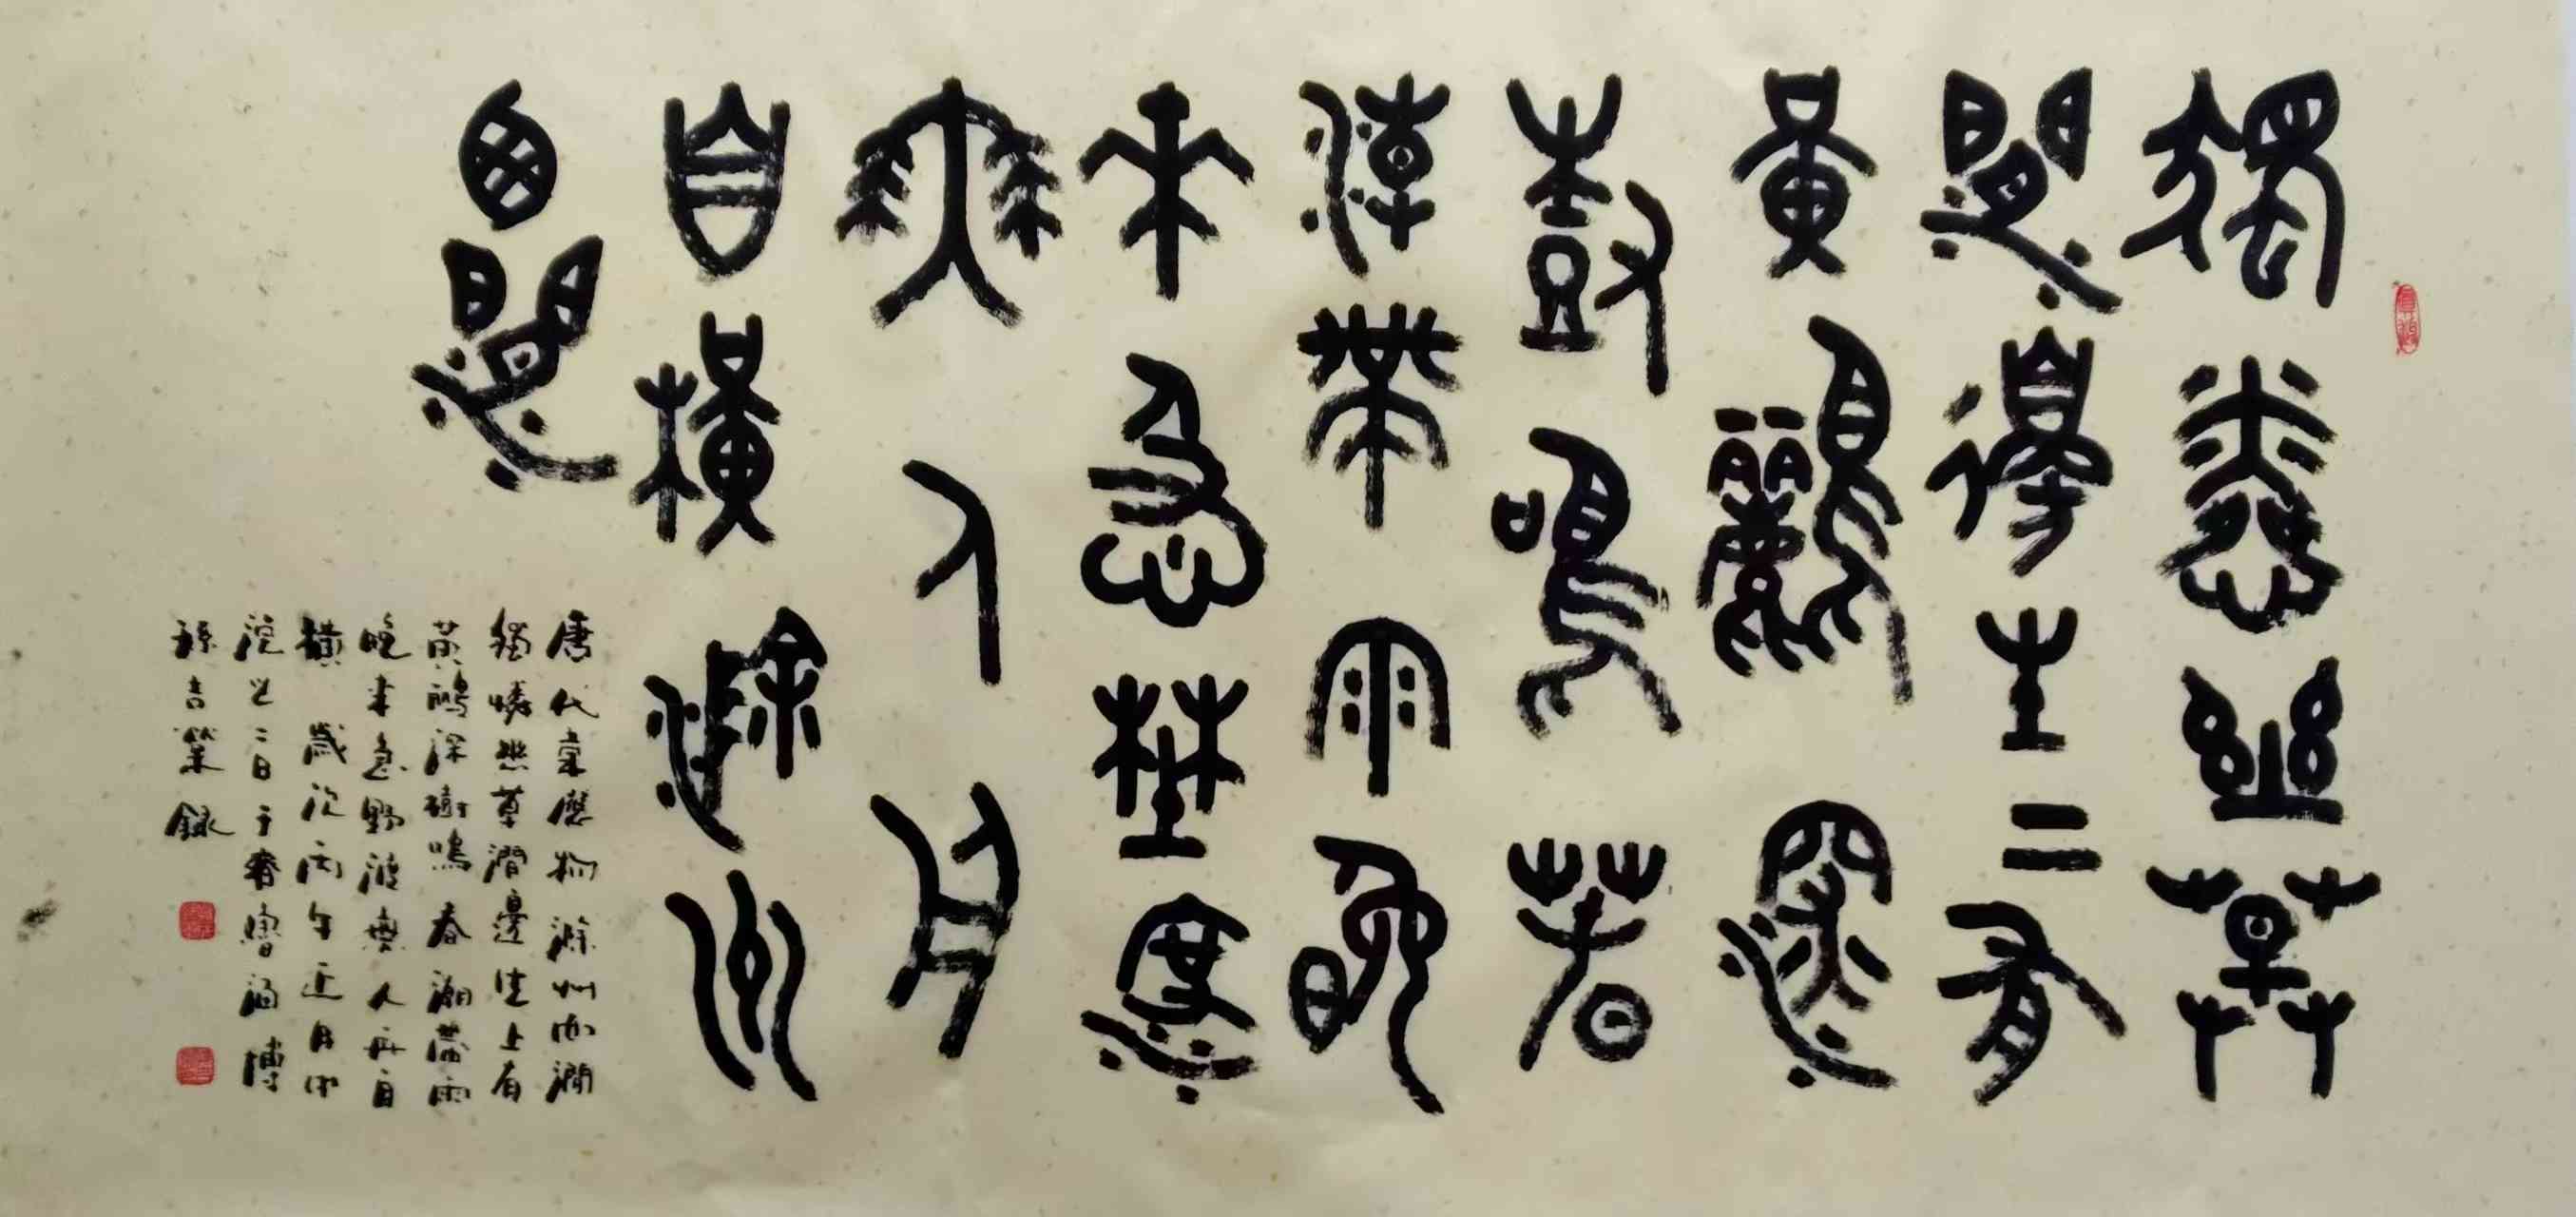 獨憐幽草
澗邊生上有
黃鸝深
樹鳴春
潮帶雨晚
來急野渡
無人舟
自橫滁州
西澗
唐代韋應物滁州西澗
獨憐幽草澗邊生上有
黃鸝深樹鳴春潮帶雨
晚來急野渡無人舟自
橫 歲次丙午正月中
浣之二日于齊魯淄博
孫吉業録